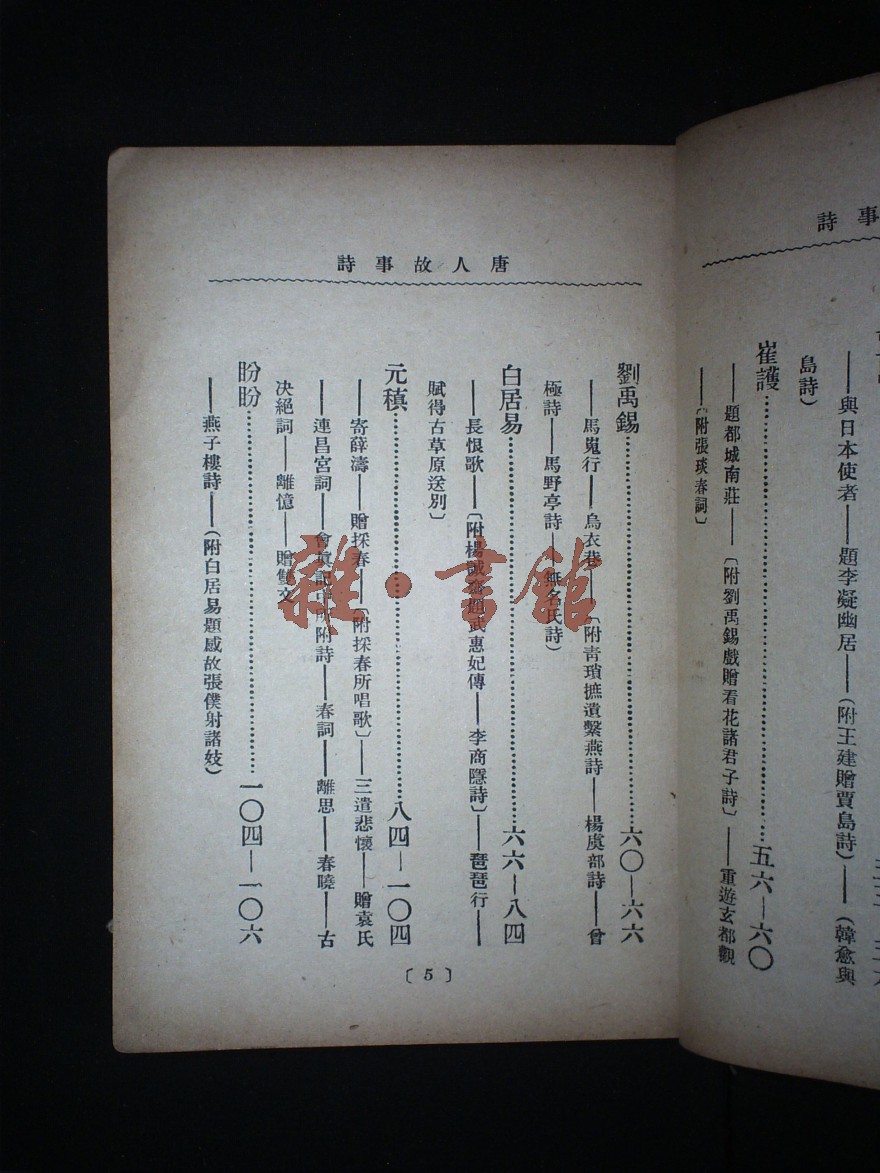 事詩
——與日本使者——題李凝幽居——(附王建贈賈島詩)——(韓愈與
島詩)
崔護……五六—六〇
——題都城南莊——〔附劉禹錫戲贈看花諸君子詩〕——重遊玄都觀
——〔附張琰春詞〕
唐人故事詩
劉禹錫……六〇—六六
——馬嵬行——烏衣巷——〔附青瑣摭遺繫燕詩——楊虞部詩——曾
極詩——馬野亭詩——無名氏詩)
白居易……六六—八四
——長恨歌——〔附楊誠齋題武惠妃傳——李商隱詩〕——琵琶行——
賦得古草原送別〕
元稹……八四—一〇四
——寄薛濤——贈採春——〔附採春所唱歌〕——三遣悲懷——贈袁氏
——連昌宮詞——會眞記中所附詩——春詞——離思——春曉——古
决絕詞——離憶——贈雙文
盼盼……一〇四—一〇六
——燕子樓詩——(附白居易題感故張僕射諸妓)
〔5〕
雜·書館